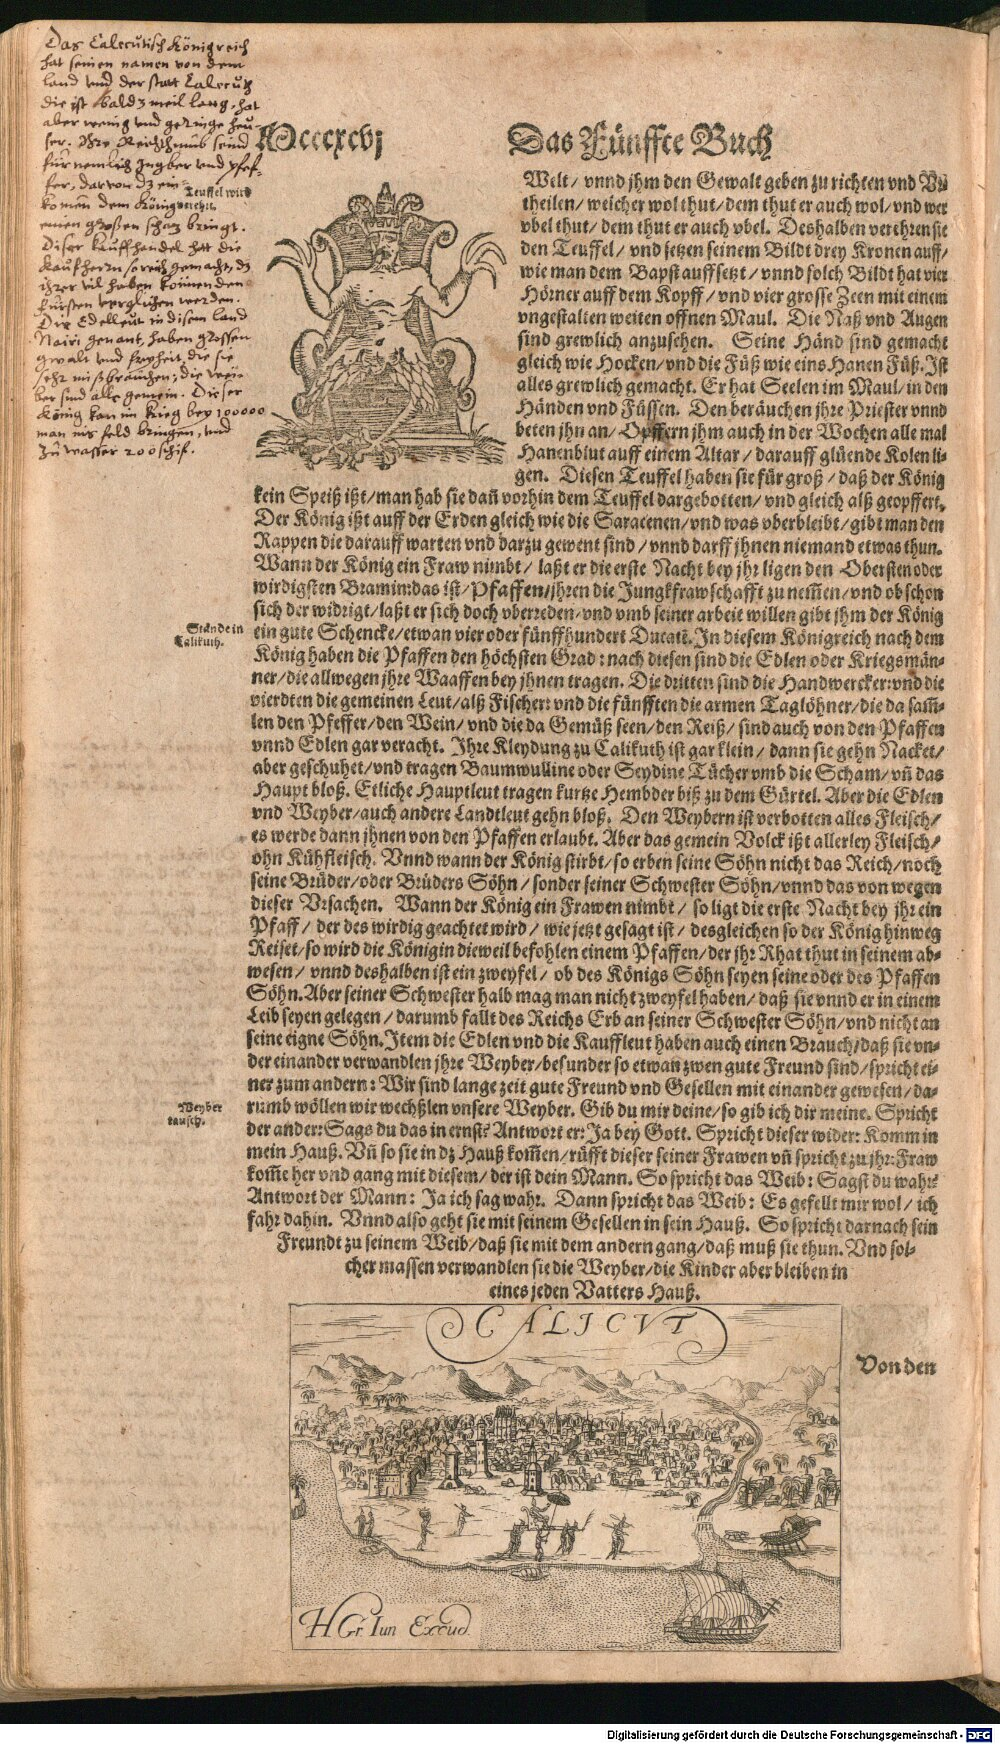 Das Calecutisch Königreich
hat seinen namen von dem
land und der statt Calecutz
die ist bald 3 meil lang, hat
aber wenig und geringe heu-
ser. Ihre Reichthumb seind
fürnemlich Ingber und pfef-
fer, darvon dz ein-
komen dem König
einen grossen schaz bringt.
Diser kauffhandel hatt die
kaufherrn so reich gemacht, dz
ihrer vil haben können den
fürsten verglichen werden.
Die Edelleut in disem land
Nairi genant, haben grossen
gwalt und freyheit, die sie
sehr mißbrauchen; die wei-
ber sind alle gemein. Dieser
König kan im krieg bey 100000
man ins feld bringen, und
zu wasser 200 schif.
Mccccxcvj
Das Fünffte Buch
Teuffel wird
verehrt.
Welt/ vnnd jhm den Gewalt geben zu richten vnd Vr-
theilen/ welcher wol thut/ dem thut er auch wol/ vnd wer
vbel thut/ dem thut er auch vbel. Deshalben verehren sie
den Teuffel/ vnd setzen seinem Bildt drey Kronen auff/
wie man dem Bapst auffsetzt/ vnnd solch Bildt hat vier
Hörner auff dem Kopff/ vnd vier grosse Zeen mit einem
vngestalten weiten offnen Maul. Die Naß vnd Augen
sind grewlich anzusehen. Seine Händ sind gemacht
gleich wie Hocken/ vnd die Füß wie eins Hanen Füß. Ist
alles grewlich gemacht. Er hat Seelen im Maul/ in den
Händen vnd Füssen. Den beräuchen jhre Priester vnnd
beten jhn an/ Opffern jhm auch in der Wochen alle mal
Hanenblut auff einem Altar/ darauff glüende Kolen li-
gen. Diesen Teuffel haben sie für groß/ daß der König
kein Speiß ißt/ man hab sie dañ vorhin dem Teuffel dargebotten/ vnd gleich alß geopffert.
Der König ißt auff der Erden gleich wie die Saracenen/ vnd was vberbleibt/ gibt man den
Rappen die darauff warten vnd darzu gewent sind/ vnnd darff jhnen niemand etwas thun.
Wann der König ein Fraw nimbt/ laßt er die erste Nacht bey jhr ligen den Obersten oder
wirdigsten Bramin: das ist/ Pfaffen/ jhren die Jungkfrawschafft zu nem̃en/ vnd ob schon
sich der widrigt/ laßt er sich doch vberreden/ vnd vmb seiner arbeit willen gibt jhm der König
ein gute Schencke/ etwan vier oder fünffhundert Ducatẽ. In diesem Königreich nach dem
Stände in
Calikuth.
König haben die Pfaffen den höchsten Grad: nach diesen sind die Edlen oder Kriegsmän-
ner/ die allwegen jhre Waaffen bey jhnen tragen. Die dritten sind die Handwercker: vnd die
vierdten die gemeinen Leut/ alß Fischer: vnd die fünfften die armen Taglöhner/ die da sam̃-
len den Pfeffer/ den Wein/ vnd die da Gemüß seen/ den Reiß/ sind auch von den Pfaffen
vnnd Edlen gar veracht. Ihre Kleydung zu Calikuth ist gar klein/ dann sie gehn Nacket/
aber geschuhet/ vnd tragen Baumwulline oder Seydine Tücher vmb die Scham/ vñ das
Haupt bloß. Etliche Hauptleut tragen kurtze Hembder biß zu dem Gürtel. Aber die Edlen
vnd Weyber/ auch andere Landtleut gehn bloß. Den Weybern ist verbotten alles Fleisch/
es werde dann jhnen von den Pfaffen erlaubt. Aber das gemein Volck ißt allerley Fleisch/
ohn Kühfleisch. Vnnd wann der König stirbt/ so erben seine Söhn nicht das Reich/ noch
seine Brüder/ oder Brüders Söhn/ sonder seiner Schwester Söhn/ vnnd das von wegen
dieser Vrsachen. Wann der König ein Frawen nimbt/ so ligt die erste Nacht bey jhr ein
Pfaff/ der des wirdig geachtet wird/ wie jetzt gesagt ist/ desgleichen so der König hinweg
Reiset/ so wird die Königin dieweil befohlen einem Pfaffen/ der jhr Rhat thut in seinem ab-
wesen/ vnnd deshalben ist ein zweyfel/ ob des Königs Söhn seyen seine oder des Pfaffen
Söhn. Aber seiner Schwester halb mag man nicht zweyfel haben/ daß sie vnnd er in einem
Leib seyen gelegen/ darumb fallt des Reichs Erb an seiner Schwester Söhn/ vnd nicht an
seine eigne Söhn. Item die Edlen vnd die Kauffleut haben auch einen Brauch/ daß sie vn-
der einander verwandlen jhre Weyber/ besunder so etwan zwen gute Freund sind/ spricht ei-
ner zum andern: Wir sind lange zeit gute Freund vnd Gesellen mit einander gewesen/ da-
Weyber
tausch.
rumb wöllen wir wechßlen vnsere Weyber. Gib du mir deine/ so gib ich dir meine. Spricht
der ander: Sags du das in ernst? Antwort er: Ja bey Gott. Spricht dieser wider: Komm in
mein Hauß. Vñ so sie in dz Hauß kom̃en/ rüfft dieser seiner Frawen vñ spricht zu jhr: Fraw
kom̃e her vnd gang mit diesem/ der ist dein Mann. So spricht das Weib: Sagst du wahr?
Antwort der Mann: Ja ich sag wahr. Dann spricht das Weib: Es gefellt mir wol/ ich
fahr dahin. Vnnd also geht sie mit seinem Gesellen in sein Hauß. So spricht darnach sein
Freundt zu seinem Weib/ daß sie mit dem andern gang/ daß muß sie thun. Vnd sol-
cher massen verwandlen sie die Weyber/ die Kinder aber bleiben in
eines jeden Vatters Hauß.
CALICVT
Von den
HGr. Iun Excud.
Digitalisierung gefördert durch die Deutsche Forschungsgemeinschaft - DFG